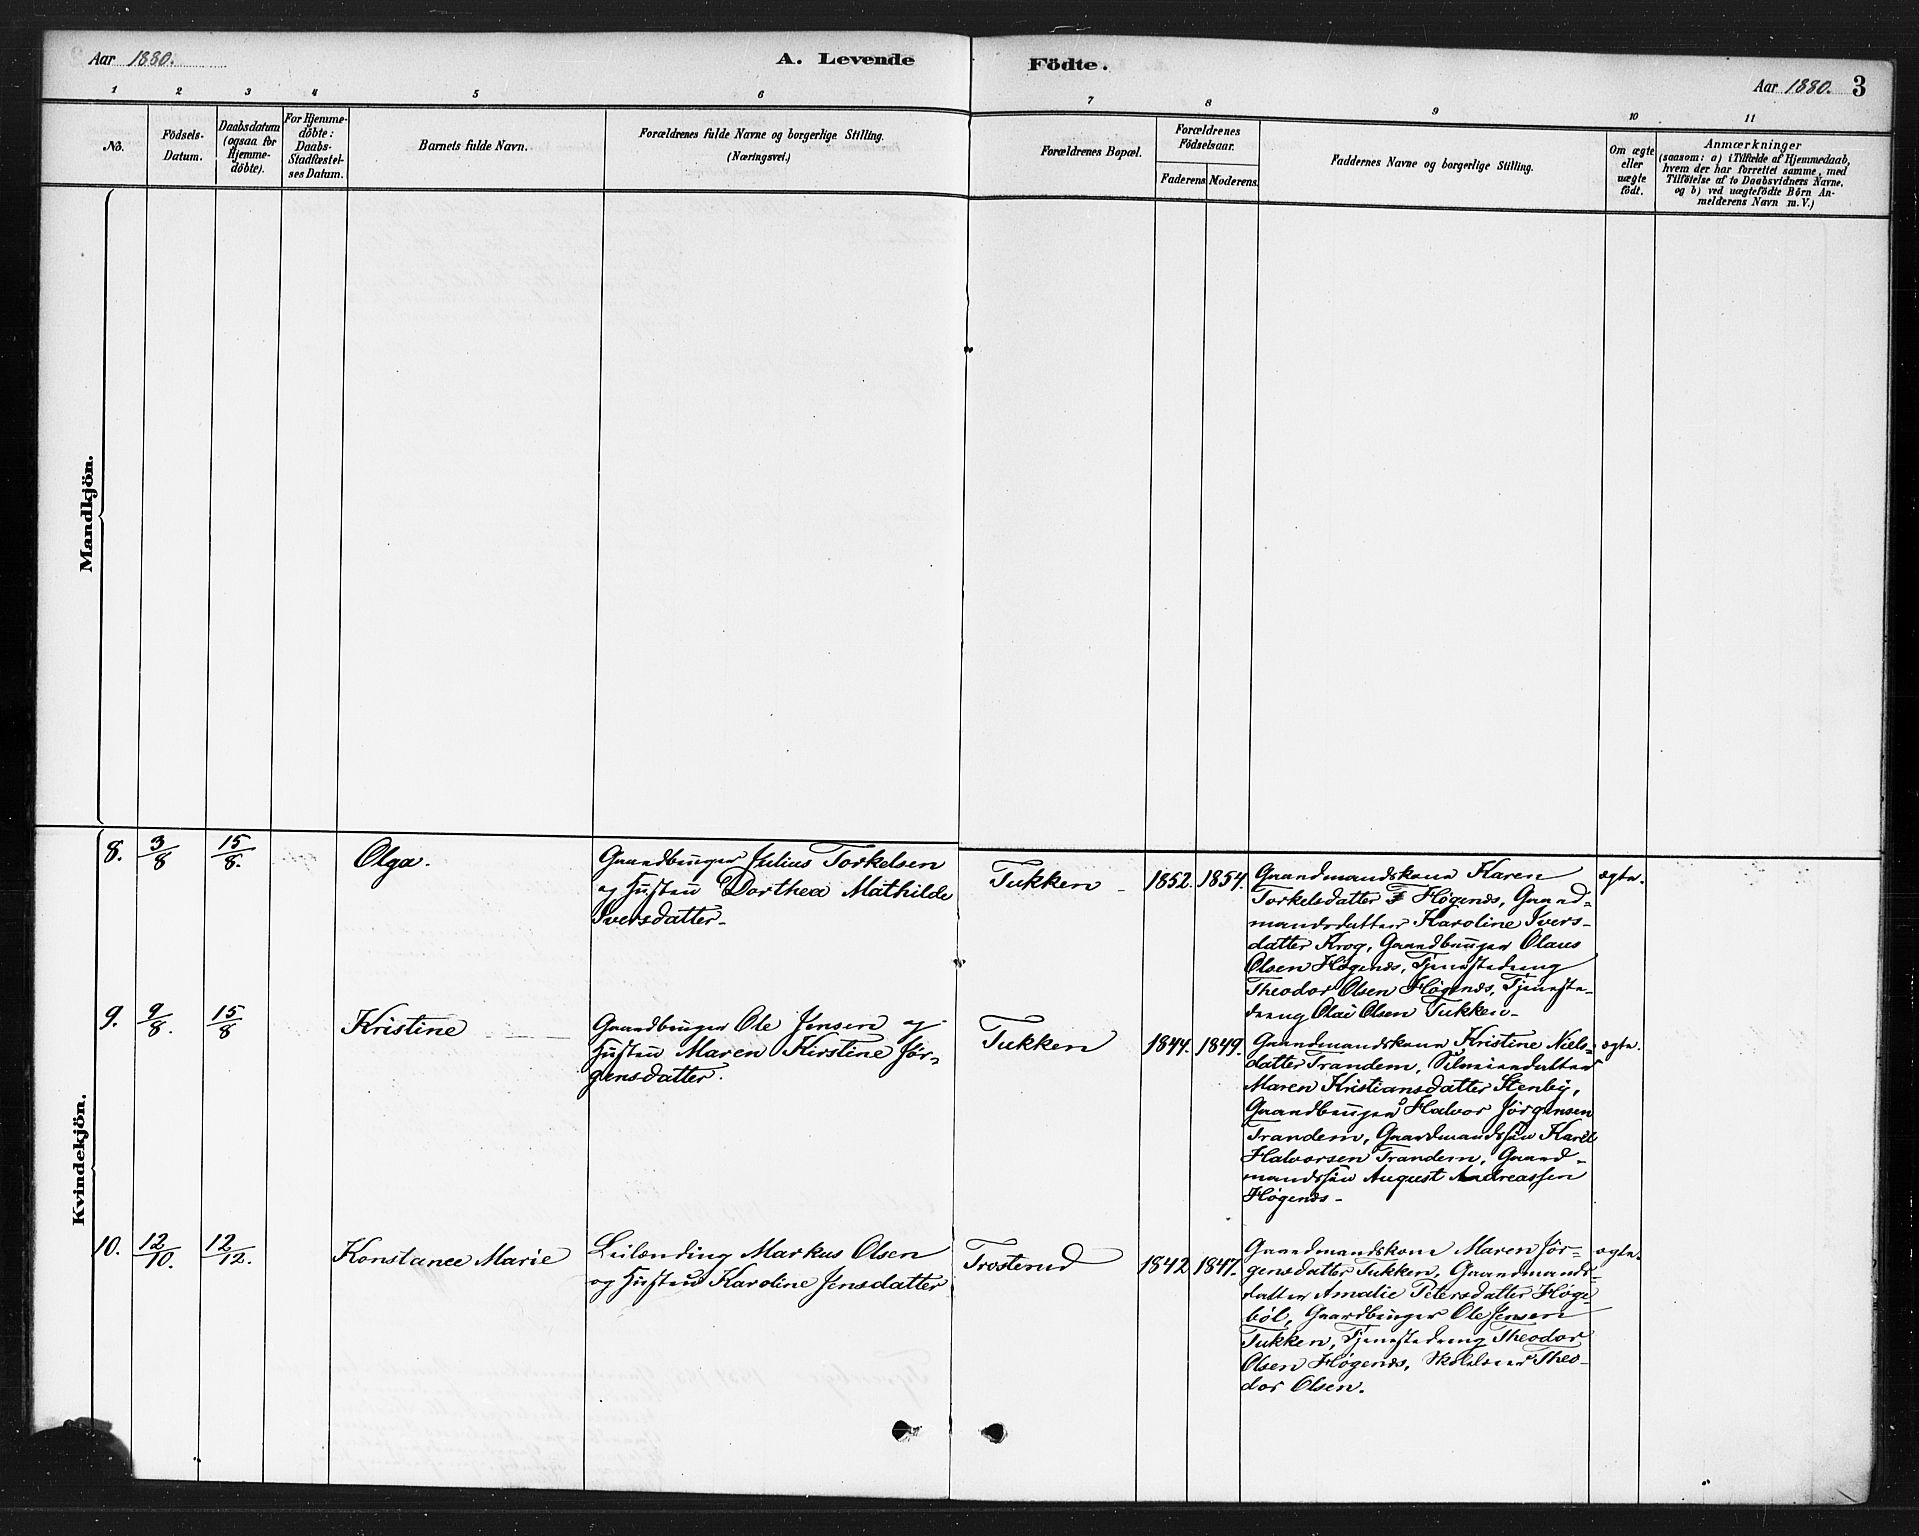 Aar 1880.
A. Levende
Födte.
Aar 1880. 3
1
2
3
4
5
6
7
8
9
10
11
No.
Födsels-
Datum.
Daabsdatum
(ogsaa for
Hjemme-
döbte).
For Hjemme-
döbte:
Daabs-
Stadfæstel-
ses Datum.
Barnets fulde Navn.
Forældrenes fulde Navne og borgerlige Stilling.
(Næringsvei.)
Forældrenes Bopæl.
Forældrenes
Födselsaar.
Faderens.
Moderens.
Faddernes Navne og borgerlige Stilling.
Om ægte
eller
uægte
födt.
Anmærkninger
(saasom: a) i Tilfælde af Hjemmedaab,
hvem der har forrettet samme, med
Tilföielse af to Daabsvidners Navne,
og b) ved uægtefödte Börn An-
melderens Navn m. V.)
Mandkjön.
Kvindekjön.
8.
3/8
15/8.
Olga.
Gaardbruger Julius Torkelsen
og Hustru Dorthea Mathilde
Iversdatter.
Tukken
1852.
1854.
Gaardmandskone Karen
Torkelsdatter Høgenes, Gaard-
mandsdatter Karoline Ivers-
datter Krog, Gaardbruger Olaus
Olsen Høgenes, Tjenestedreng
Theodor Olsen Høgenes, Tjeneste-
dreng Olai Olsen Tukken.
ægte.
9.
9/8.
15/8
Kristine
Gaardbruger Ole Jensen og
Hustru Maren Kirstine Jør-
gensdatter.
Tukken
1844.
1849.
Gaardmandskone Kristine Niels-
datter Trandem,
Maren Kristiansdatter Stenby,
Gaardbruger Halvor Jørgensen
Trandem, Gaardmandssøn Karl
Halvorsen Trandem, Gaard-
mandssøn August Andreassen
Høgenes.
ægte.
10.
12/10.
12/12.
Konstance Marie
Leilænding Markus Olsen
og Hustru Karoline Jensdatter
Trosterud
1842
1847.
Gaardmandskone Maren Jør-
gensdatter Tukken, Gaardmands-
datter Amalie Petersdatter Høge-
böl, Gaardbruger Ole Jensen
Tukken, Tjenestedreng Theodor
Olsen Høgenes, Theo-
dor Olsen.
ægte.